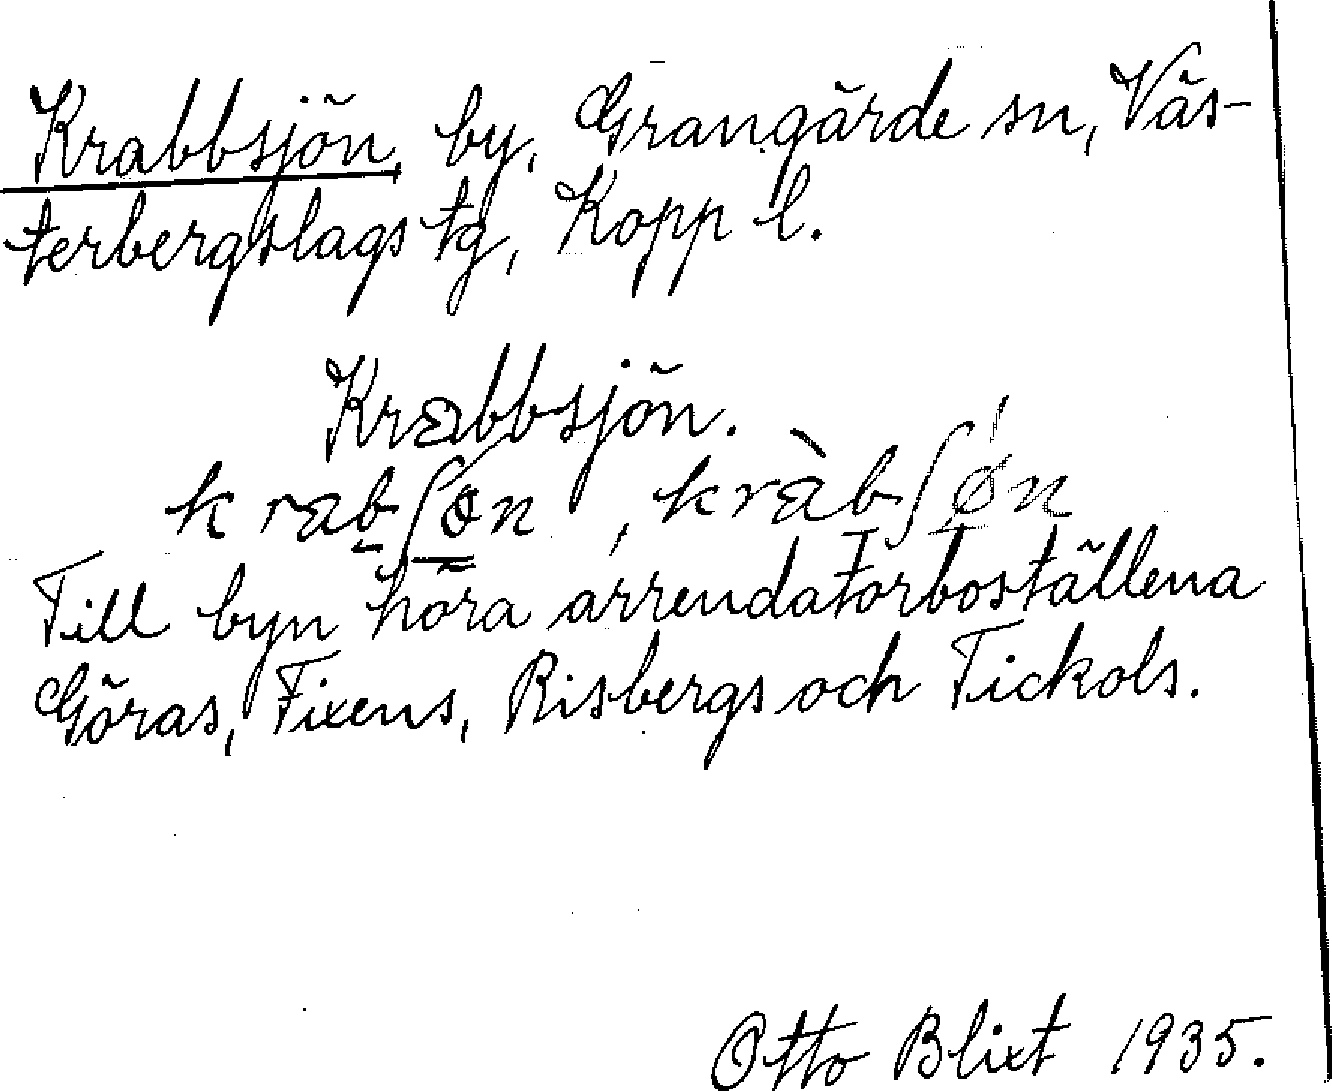 Krabbsjön, by, Grangärde sn, Väs-
terbergslags tg, Kopp l.
Krabbsjön.
krabʃøn, kràbʃǿn
Till byn höra arrendatorboställena
Göras, Fixens, Risbergs och Tickols.
Otto Blixt 1935.